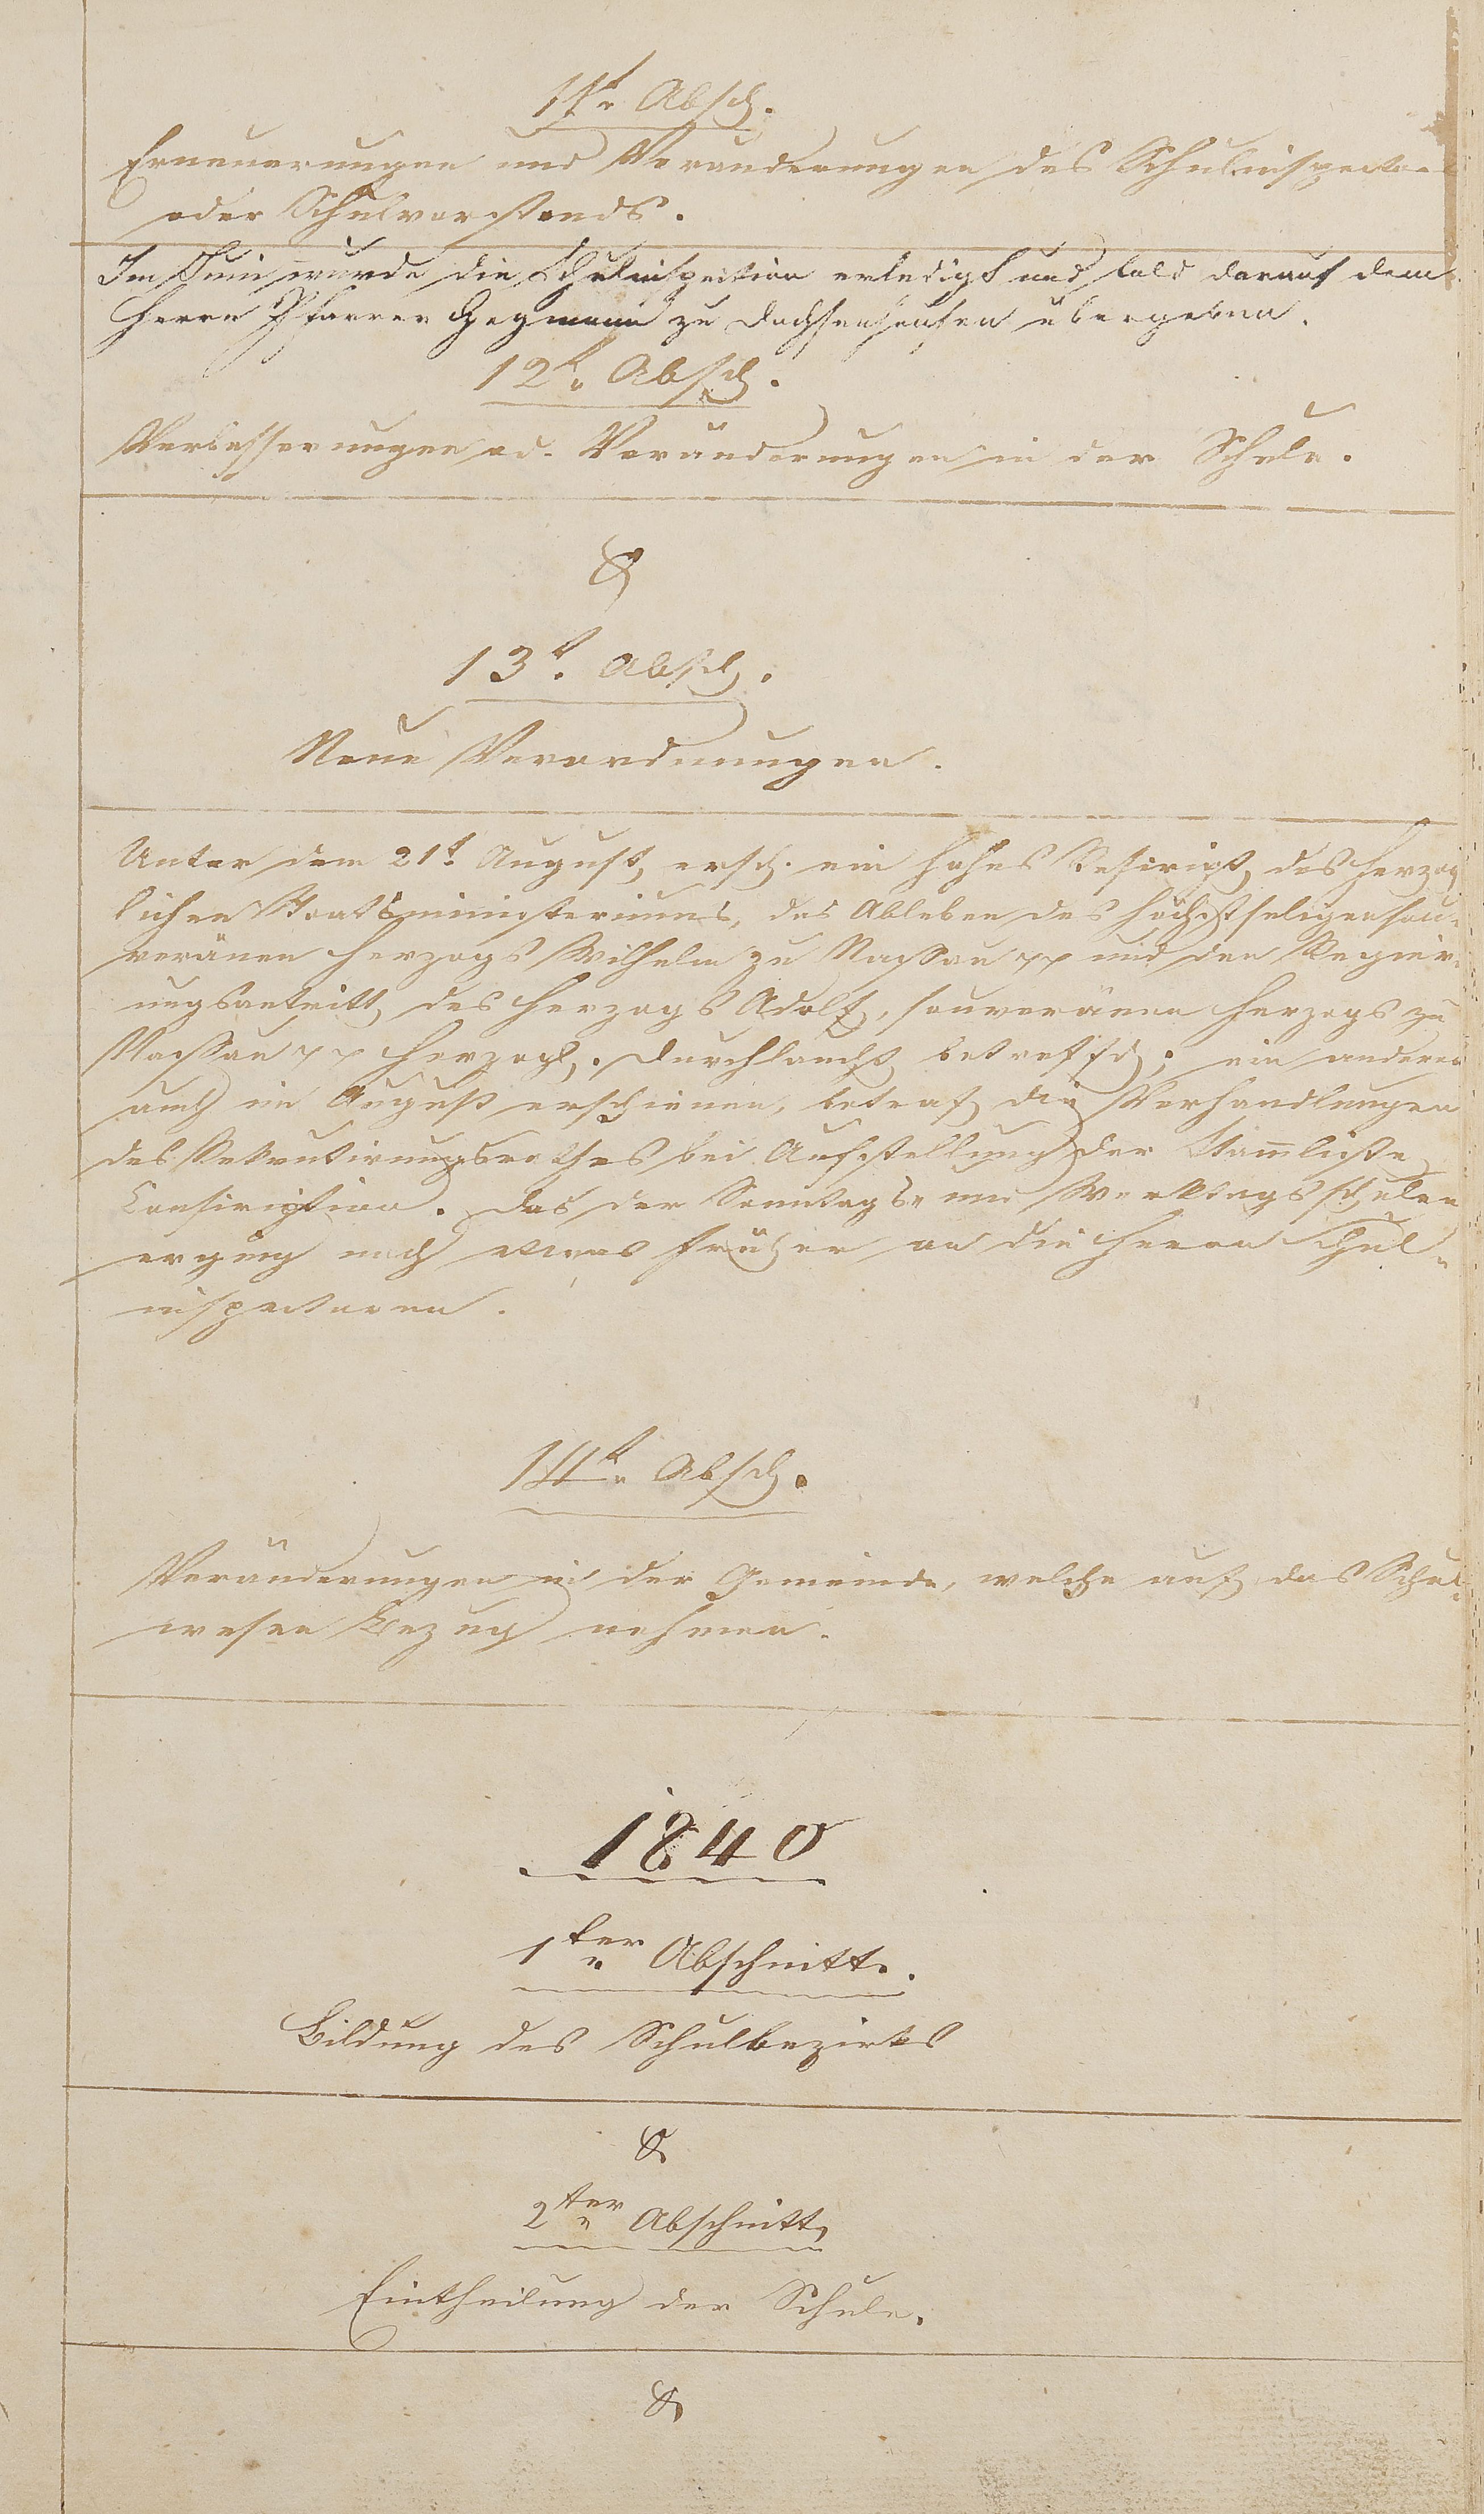 11t. Absch.
Erneuerungen und Veränderungen des Schulinspector
oder Schulvorstands.
Im Juni wurde die Schulinspection erledigt und bald darauf dem
Herrn Pfarrer Hegmann zu Dachsenhausen übergeben.
12t. Absch.
Verbesserungen od. Veränderungen in der Schule.
&
13t. Absch.
Neue Verordnungen.
Unter dem 21t. August ersch. ein hohes Rescript des Herzog
lichen Staatsministeriums, das Ableben des höchstseligen sou-
veränen Herzogs Wilhelm zu Nassau pp und den Regier-
ungsantritt des Herzogs Adolf, souveränen Herzogs zu
Nassau pp Herzogl. Durchlaucht betreffd; ein anderes
auch im August erschienen, betraf die Verhandlungen
des Rekrutirungsrathes bei Aufstellung der Stammliste
Conscription. Das der Sonntags- und Werktagsschulen
erging noch etwas früher an die Herrn Schul-
inspectoren.
14t. Absch.
Veränderungen in der Gemeinde, welche auf das Schul-
wesen Bezug nehmen.
1840
1ter Abschnitt.
Bildung des Schulbezirks
&
2ter Abschnitt
Eintheilung der Schule.
&